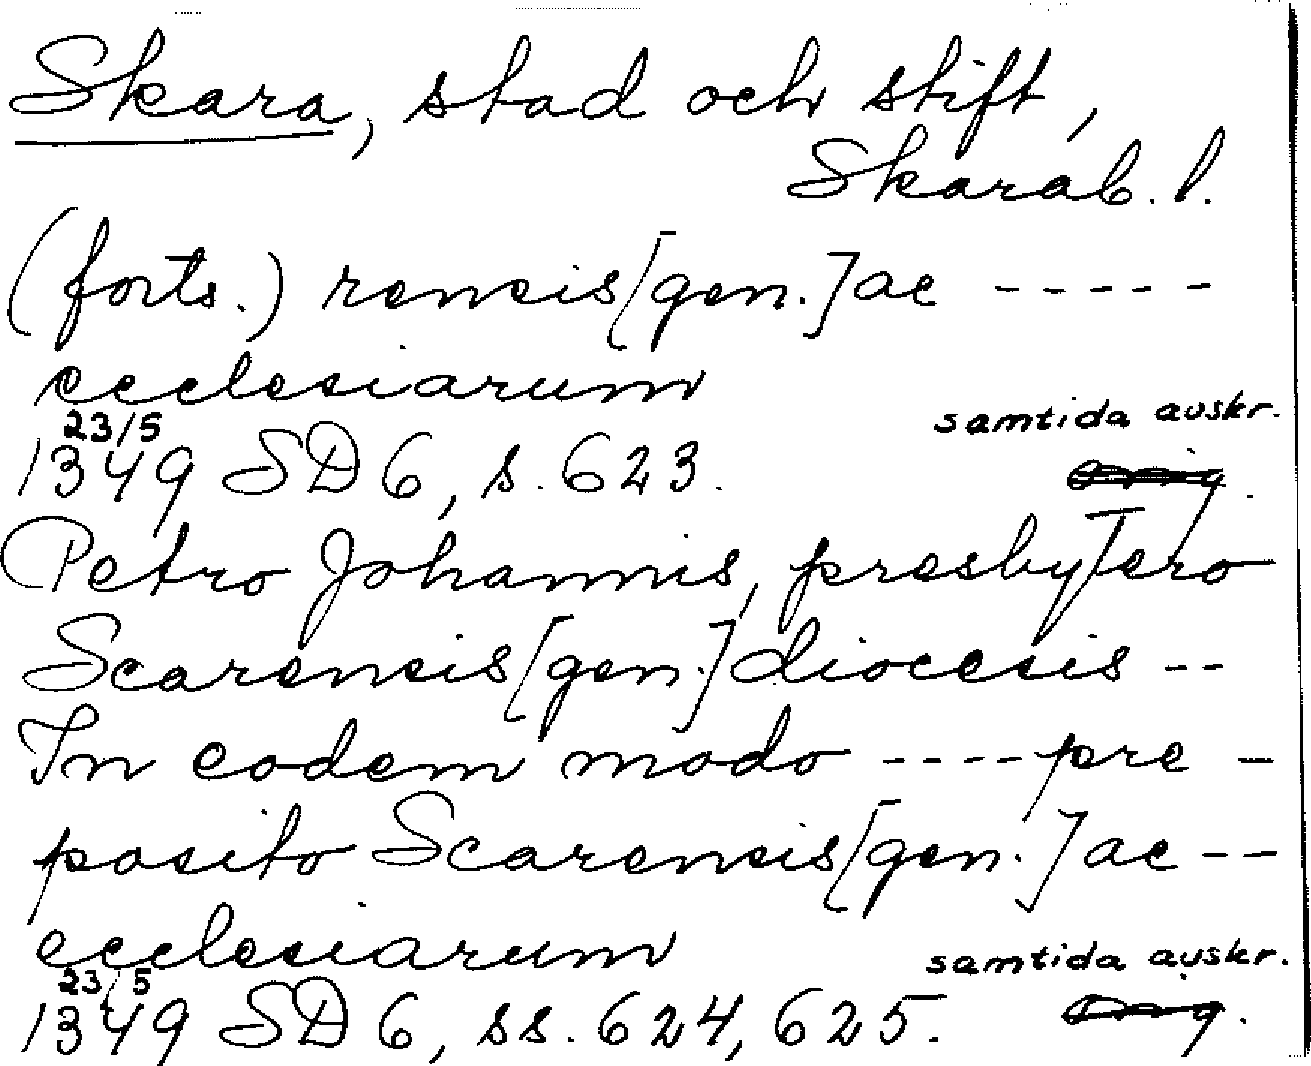 Skara, stad och stift,
Skarab. l.
(forts.) rensis [gen.] ac -----
ecclesiarum
23/5 samtida avskr.
1349 SD 6, s. 623. orig.
Petro Johannis, presbytero
Scarensis [gen.] diocesis --
In eodem modo ---- pre-
posito Scarensis [gen.] ac --
ecclesiarum
23/5 samtida avskr.
1349 SD 6, ss. 624, 625. orig.